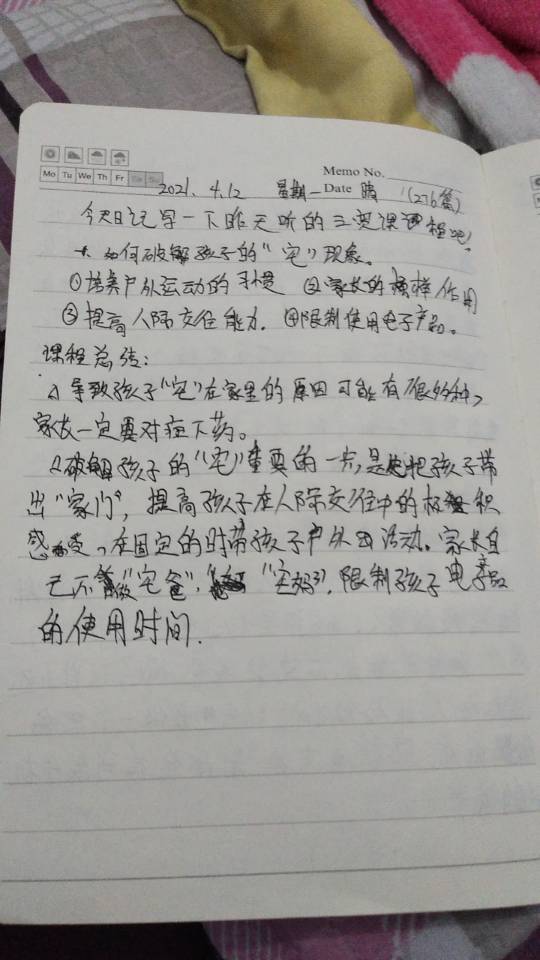 Memo No.
Mo Tu We Th Fr Sa Su
Date
2021. 4.12 星期一 晴 (276篇)
今天日记写一下昨天听的三宽课课程吧!
一、如何破解孩子的“宅”现象。
①培养户外运动的习惯 ②家长的榜样作用
③提高人际交往能力. ④限制使用电子产品。
课程总结:
1、导致孩子“宅”在家里的原因可能有很多种,
家长一定要对症下药。
2、破解孩子的“宅”重要的一点,是把孩子带
出“家门”, 提高孩子在人际交往中的积
感受、在固定的时带孩子户外活动。家长自
己不做“宅爸”, “宅妈”, 限制孩子电子产品
的使用时间.